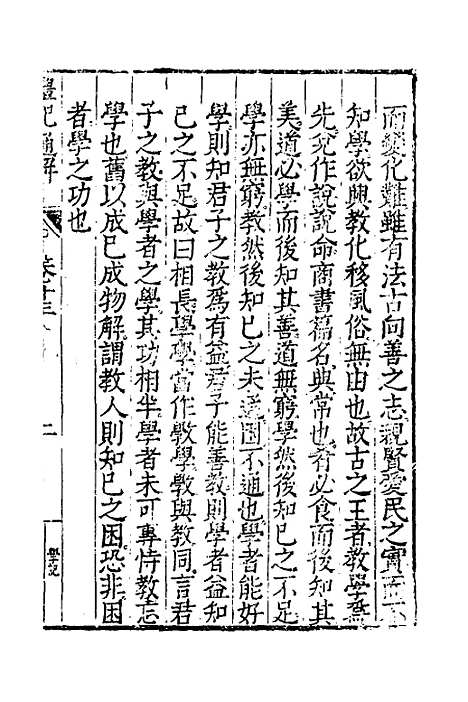 而變化難雖有法古向善之志親賢愛民之實而不
知學欲興教化移風俗無由也故古之王者教學爲
先兊作說說命商書篇名典常也肴必食而後知其
美道必學而後知其善道無窮學然後知已之不足
學亦無窮教然後知已之未達困不通也學者能好
學則知君子之教爲有益君子能善教則學者益知
已之不足故曰相長學學當作斆學斆與教同言君
子之教與學者之學其功相半學者未可專恃教忘
學也舊以成已成物解謂教人則知已之困恐非困
者學之功也
禮記通解
卷十三
二
學記